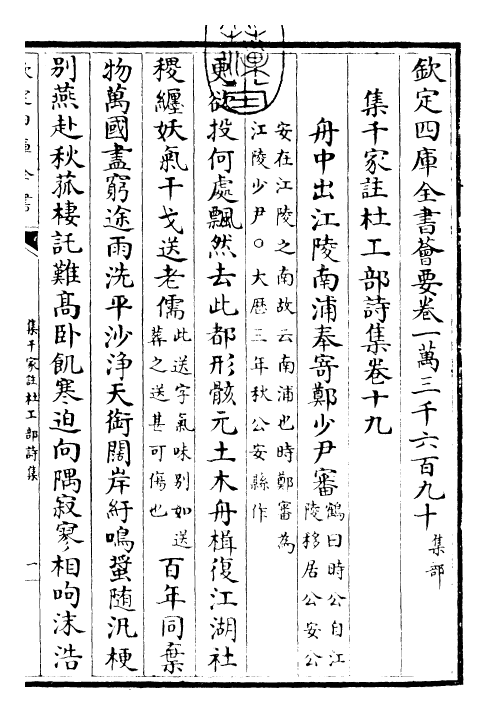 欽定四庫全書薈要卷一萬三千六百九十 集部
集千家註杜工部詩集卷十九
舟中出江陵南浦奉寄鄭少尹審 鶴曰時公自江
陵移居公安公
安在江陵之南故云南浦也時鄭審為
江陵少尹○大厯三年秋公安縣作
更欲投何處飄然去此都形骸元土木舟楫復江湖社
稷纏妖氣干戈送老儒 此送字氣味別如送
葬之送甚可傷也 百年同棄
物萬國盡窮途雨洗平沙浄天銜闊岸紆鳴螿随汎梗
別燕赴秋菰棲託難髙卧飢寒迫向隅寂寥相呴沫浩
欽定四庫全書
集千家註杜工部詩集
一